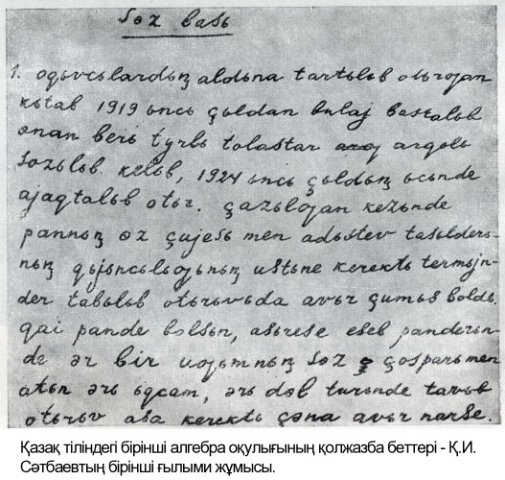 søz basь
1. oqьvcьlardьꞑ aldьna tartьlьb otьrƣan
kьtab 1919 ьncь çьldan bulaj bastalьb
onan berь tyrlь tolastar arqьlь
sozьlьb kelьb, 1924 ьncь çьldьꞑ ьcьnde
ajaqtalьb otьr. çazьlƣan kezьnde
pannьꞑ øz çujesь men adьstev tasьlderь-
nьꞑ qьjьncьlьƣьnьꞑ ustьne kerektь termjn-
der tabьlьb otьrьvьda avьr çumьs boldь.
qai pande bolsьn, asьrese eseb panderьn-
de ər bir uƣьmnьꞑ søz çosparь men
atьn ərь ьqcam, ərь dəl turьnde tavьb
otьrьv asa kerektь çəna avьr nərse.
Қазақ тіліндегі бірінші алгебра оқулығының қолжазба беттері - Қ.И.
Сәтбаевтың бірінші ғылыми жұмысы.